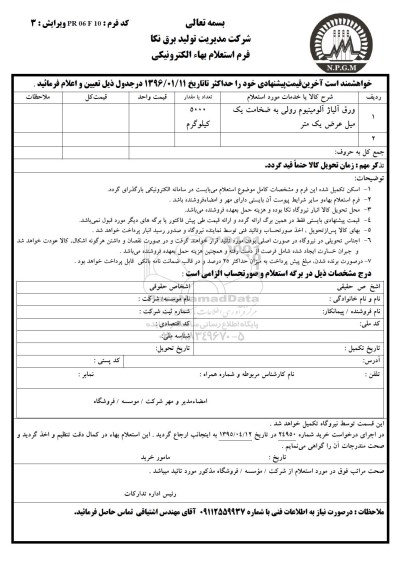 بسمه تعالی
کد فرم : PR 06 F 10 ویرایش : 3
شرکت مدیریت تولید برق نکا
فرم استعلام بهاء الکترونیکی
N.P.G.M
خواهشمند است آخرین قیمت پیشنهادی خود را حداکثر تا تاریخ 1396/01/11 در جدول ذیل تعیین و اعلام فرمائید .
ردیف شرح کالا یا خدمات مورد استعلام تعداد یا مقدار قیمت واحد قیمت کل ملاحظات
1 ورق آلیاژ آلومینیوم رولی به ضخامت یک میل عرض یک متر 5000 کیلوگرم
2
جمع کل به حروف:
تذکر مهم : زمان تحویل کالا حتماً قید گردد.
توضیحات:
1- امکان تکمیل شده این فرم و مشخصات کامل موضوع استعلام می‌بایست در سامانه الکترونیکی بارگذاری گردد.
2- فرم استعلام بهاء و سایر شرایط پیوست آن بایستی دارای مهر و امضاء فروشنده باشد .
3- محل تحویل کالا انبار نیروگاه نکا بوده و هزینه حمل بعهده فروشنده می‌باشد.
4- قیمت پیشنهادی بایستی فقط در همین برگ ارائه گردد و ارائه قیمت طی پیش فاکتور یا برگه های دیگر مورد قبول نمی‌باشد.
5- بهای کالا پس از تحویل ، اخذ صورتحساب و تائید فنی توسط نماینده نیروگاه و صدور رسید انبار پرداخت خواهد شد .
6- اجناس تحویلی در نیروگاه در صورت اصلی بودن مورد تائید قرار خواهند گرفت و در صورت نقصان و داشتن هرگونه اشکال کالا عودت خواهد شد و جبران خسارت ایجاد شده شامل فرصت از دست رفته و همچنین هزینه حمل بعهده فروشنده می‌باشد.
7- درصورت برنده شدن، مبلغ پیش پرداخت به میزان حداکثر 25 درصد و در قالب ضمانت نامه بانکی قابل پرداخت خواهد بود .
درج مشخصات ذیل در برگه استعلام و صورتحساب الزامی است :
اشخاص حقیقی اشخاص حقوقی
نام و نام خانوادگی : نام موسسه/ شرکت :
نام فروشنده / پیمانکار: شماره ثبت شرکت :
کد ملی: کد اقتصادی :
شناسه ملی:
تاریخ تکمیل : تاریخ تحویل:
آدرس: کد پستی :
تلفن : نام کارشناس مربوطه و شماره همراه : نمابر :
امضاء مدیر و مهر شرکت / موسسه / فروشگاه
این قسمت توسط نیروگاه تکمیل خواهد شد .
در اجرای درخواست خرید شماره 24950 در تاریخ 1395/04/12 به اینجانب ارجاع گردید . این استعلام بهاء در کمال دقت تنظیم و اخذ گردید و صحت مندرجات آن را گواهی می‌نمایم .
تاریخ : مامور خرید
صحت مراتب فوق در مورد استعلام از شرکت / مؤسسه / فروشگاه مذکور مورد تائید میباشد .
رئیس اداره تدارکات
ملاحظات : درصورت نیاز به اطلاعات فنی با شماره 09112559937 آقای مهندس اشتیاقی تماس حاصل فرمائید.